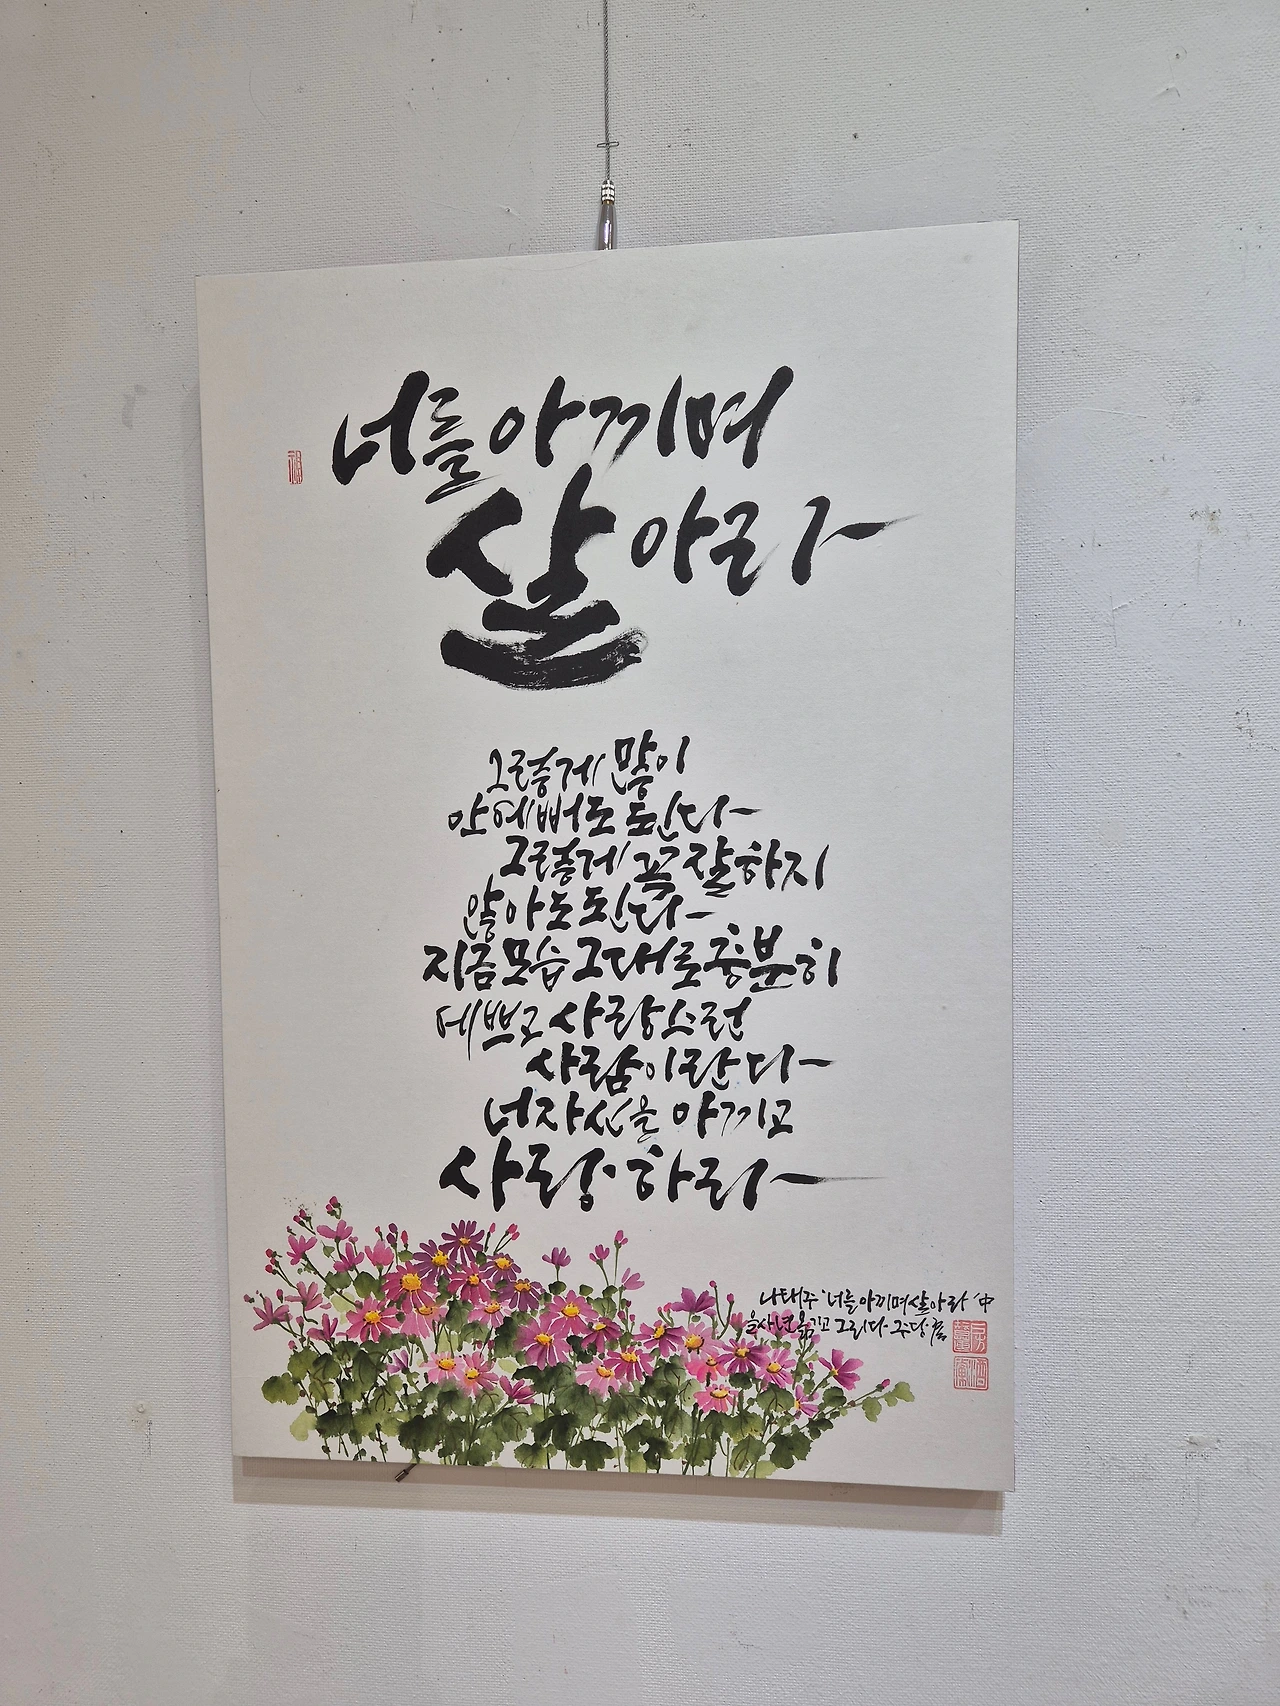 너를 아끼며
살아라
그렇게 많이
안 예뻐도 된다
그렇게 꼭 잘하지
않아도 된다
지금 모습 그대로 충분히
예쁘고 사랑스런
사람이란다
너 자신을 아끼고
사랑하라
나태주 '너를 아끼며 살아라' 中
을사년 옮기고 그리다